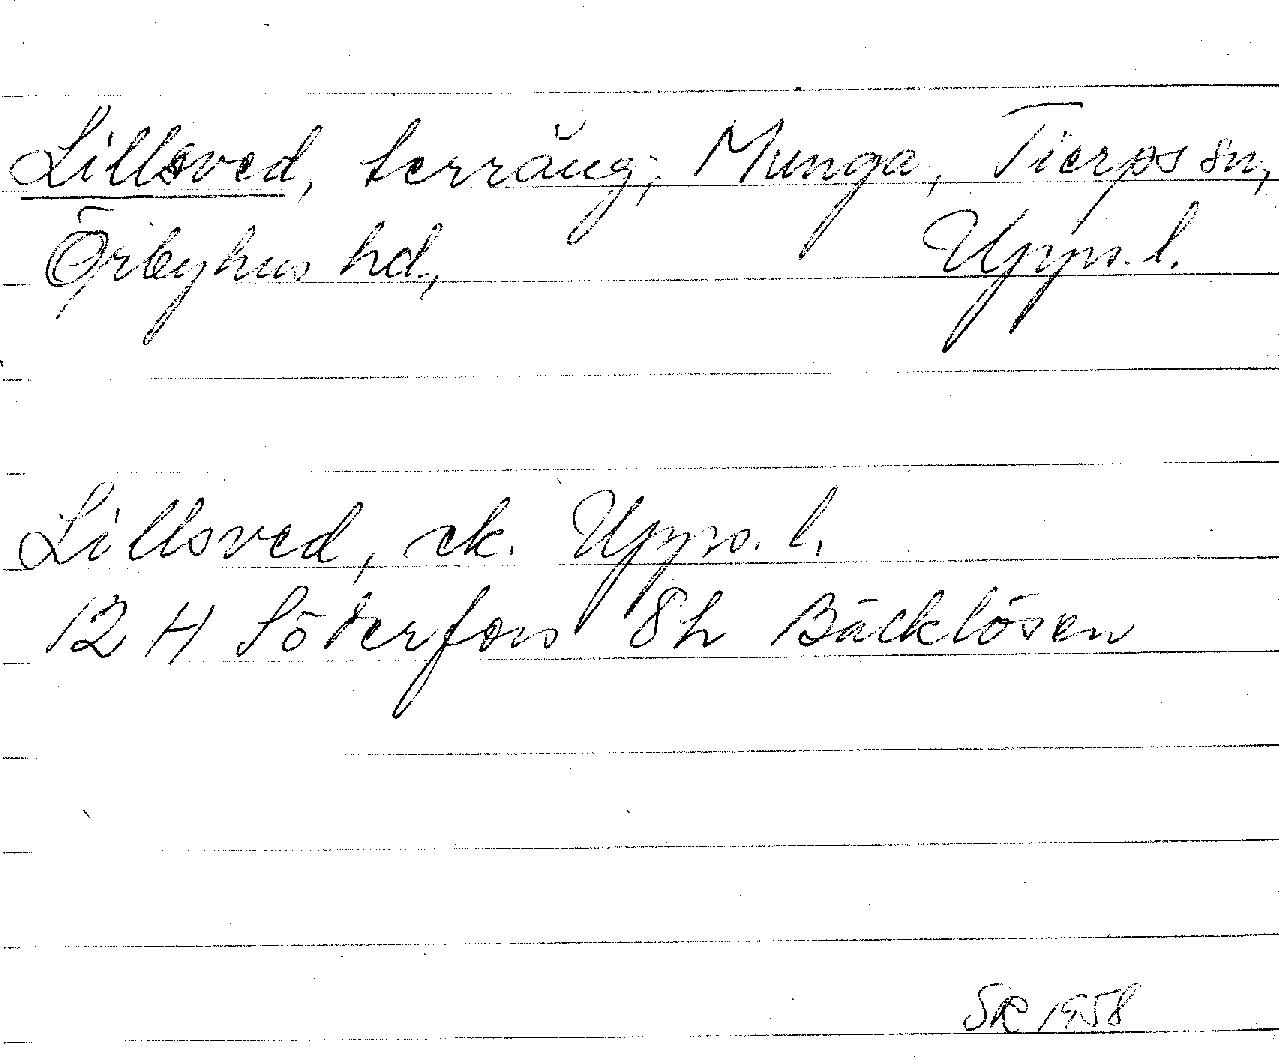 Lillsved, terräng, Munga, Tierps sn,
Örbyhus hd, Upps. l.
Lillsved, ek. Upps. l.
12 H Söderfors 8h Bäcklösen
SR 1958